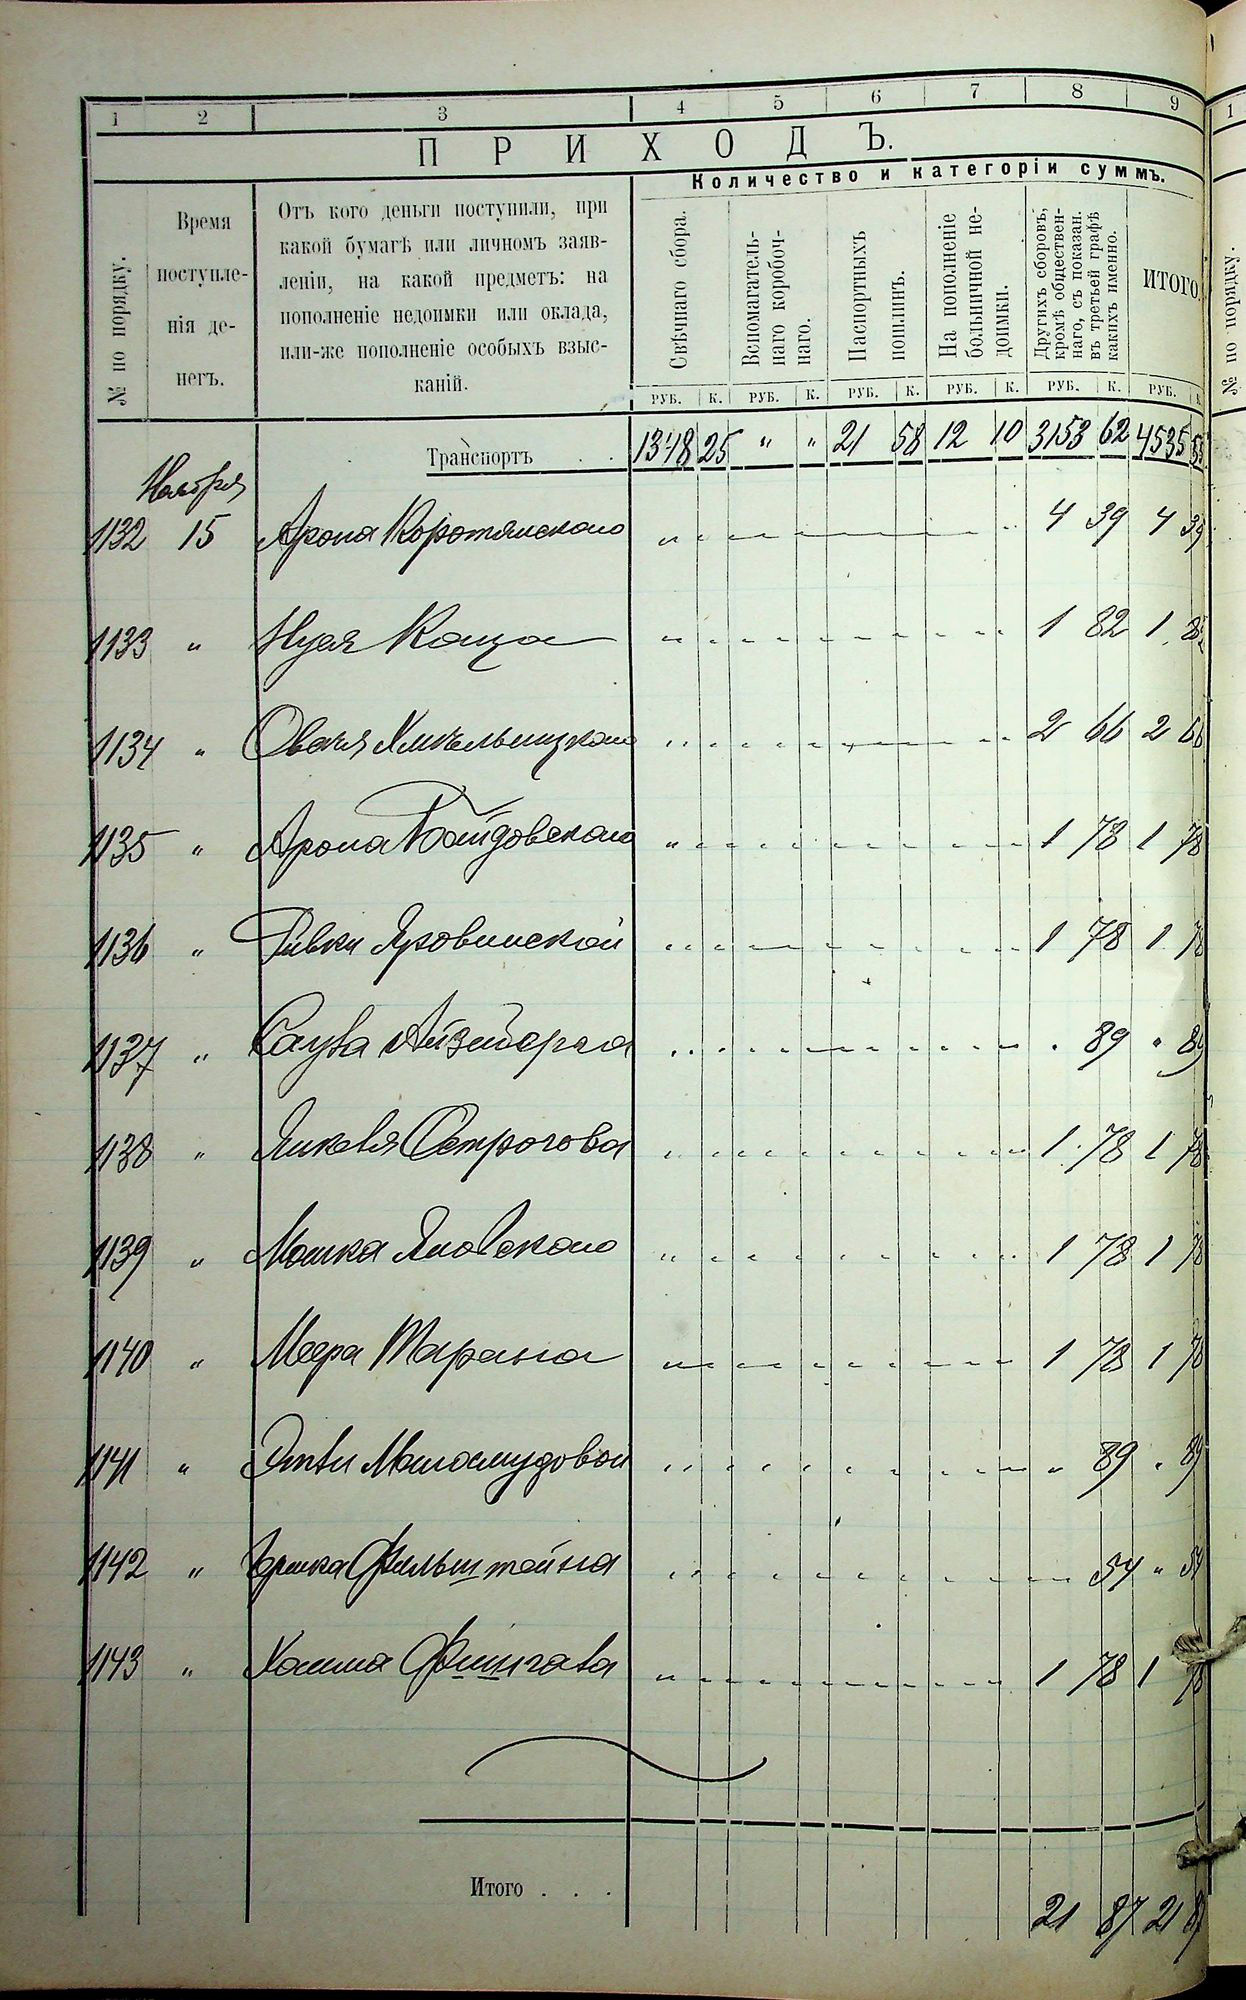 1 2 3 4 5 6 7 8 9
ПРИХОДЪ.
Количество и категоріи суммъ.
№ по порядку.
Время
поступле-
нія де-
негъ.
Отъ кого деньги поступили, при
какой бумагѣ или личномъ заяв-
леніи, на какой предметъ: на
пополненіе недоимки или оклада,
или-же пополненіе особыхъ взыс-
каній.
Свѣчнаго сбора.
Вспомагатель-
наго коробоч-
наго.
Паспортныхъ
пошлинъ.
На пополненіе
больничной не-
доимки.
Другихъ сборовъ,
кромѣ обществен-
наго, съ показан.
въ третьей графѣ
какихъ именно.
ИТОГО.
РУБ. К. РУБ. К. РУБ. К. РУБ. К. РУБ. К. РУБ. К.
Транспортъ . . 1348 25 " " 21 58 12 10 3153 62 4535 55
Ноября
1132 15 Арона Коротянскаго 4 39 4 39
1133 " Нуся Каца 1 82 1 82
1134 " Овсея Хмельницкаго 2 66 2 66
1135 " Арона Байдовскаго 1 78 1 78
1136 " Ривки Яровинской 1 78 1 78
1137 " 89 " 89
1138 " Янкеля Острогова 1 78 1 78
1139 " Мошка Яновскаго 1 78 1 78
1140 " Меера Тарана 1 78 1 78
1141 " " 89 " 89
1142 " Гершка Фильштейна 54 " 54
1143 " 1 78 1 78
Итого . . . 21 87 21 87
1
№ по порядку.